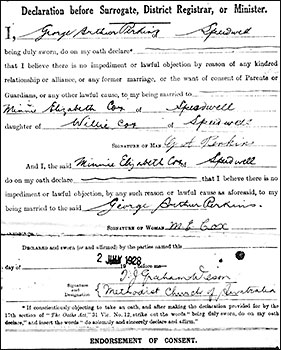 Declaration before Surrogate, District Registrar, or Minister.
I, George Arthur Perkins Speedwell
being duly sworn, do on my oath declare*
that I believe there is no impediment or lawful objection by reason of any kindred
relationship or alliance, or any former marriage, or the want of consent of Parents or
Guardians, or any other lawful cause, to my being married to
Minnie Elizabeth Cox of Speedwell
daughter of Willie Cox of Speedwell
SIGNATURE OF MAN G A Perkins
And I, the said Minnie Elizabeth Cox Speedwell
do on my oath declare that I believe there is no
impediment or lawful objection, by such reason or lawful cause as aforesaid, to my
being married to the said George Arthur Perkins.
SIGNATURE OF WOMAN M E Cox
DECLARED and sworn (or and affirmed) by the parties named this
day of 2 1928 before me—
Graham
Signature and Designation Methodist Church of Australia
* If conscientiously objecting to take an oath, and after making the declaration provided for by the
17th section of "The Oaths Act," 31 Vic. No. 12, strike out the words "being duly sworn, do on my oath
declare," and insert the words "do solemnly and sincerely declare and affirm."
ENDORSEMENT OF CONSENT.